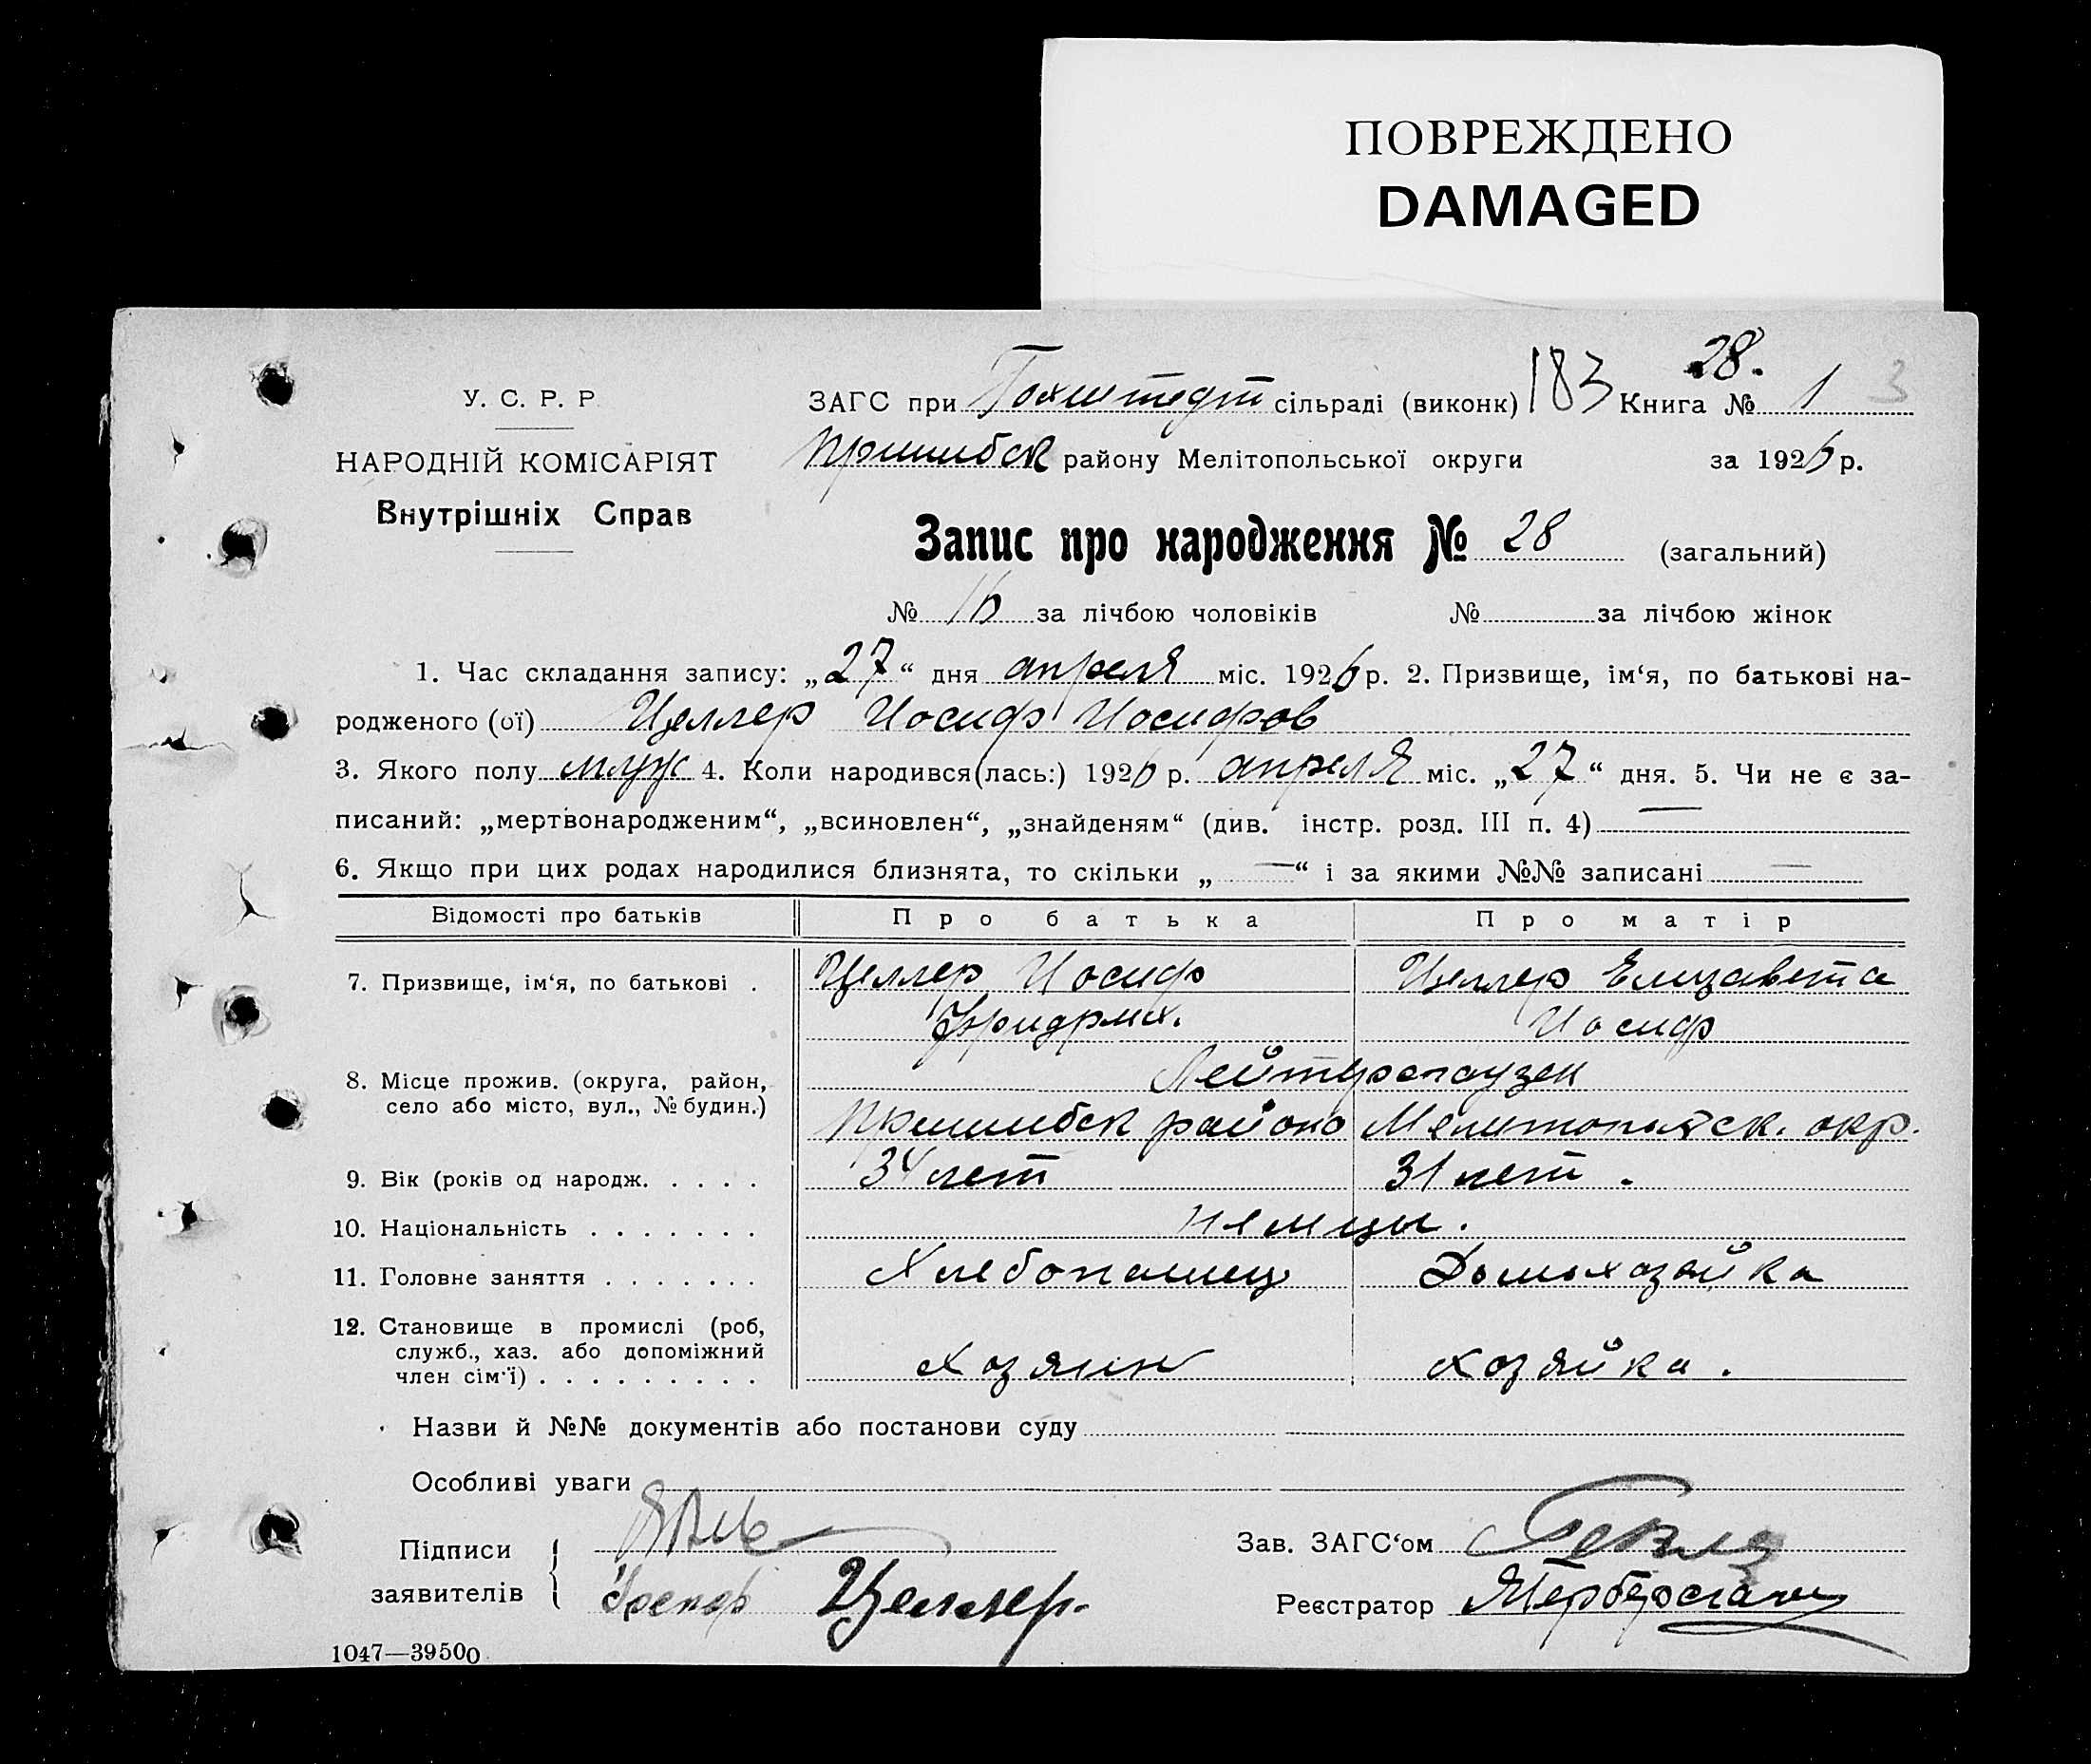 ПОВРЕЖДЕНО
DAMAGED
28.
У. С. Р. Р.
НАРОДНІЙ КОМІСАРІЯТ
Внутрішніх Справ
ЗАГС при Гохштедт сільраді (виконк) 183 Книга № 1 3
Пришибск району Мелітопольської округи за 1926 р.
Запис про народження № 28 (загальний)
№ 16 за лічбою чоловіків № за лічбою жінок
1. Час складання запису: „27“ дня апреля міс. 1926 р. 2. Призвище, ім‘я, по батькові на-
родженого (ої) Целлер Иосиф Иосифов
3. Якого полу муж 4. Коли народився(лась:) 1926 р. апреля міс. „27“ дня. 5. Чи не є за-
писаний: „мертвонародженим“, „всиновлен“, „знайденям“ (див. інстр. розд. III п. 4) —
6. Якщо при цих родах народилися близнята, то скільки „—“ і за якими №№ записані —
Відомості про батьків Про батька Про матір
7. Призвище, ім‘я, по батькові . Целлер Иосиф Целлер Елизавета
Фридрих. Иосиф
8. Місце прожив. (округа, район, Лейтерсгаузен
село або місто, вул., № будин.) Пришибск района Мелитопольск. окр.
9. Вік (років од народж. . . . . 34 лет 31 лет .
10. Національність . . . . . . . немцы.
11. Головне заняття . . . . . . . Хлебопашец Домохозяйка
12. Становище в промислі (роб,
служб., хаз. або допоміжний Хозяин хозяйка.
член сім‘ї) . . . . . . . . .
Назви й №№ документів або постанови суду
Особливі уваги
Підписи Зав. ЗАГС‘ом
заявителів Иосиф Целлер. Реєстратор
1047—39500